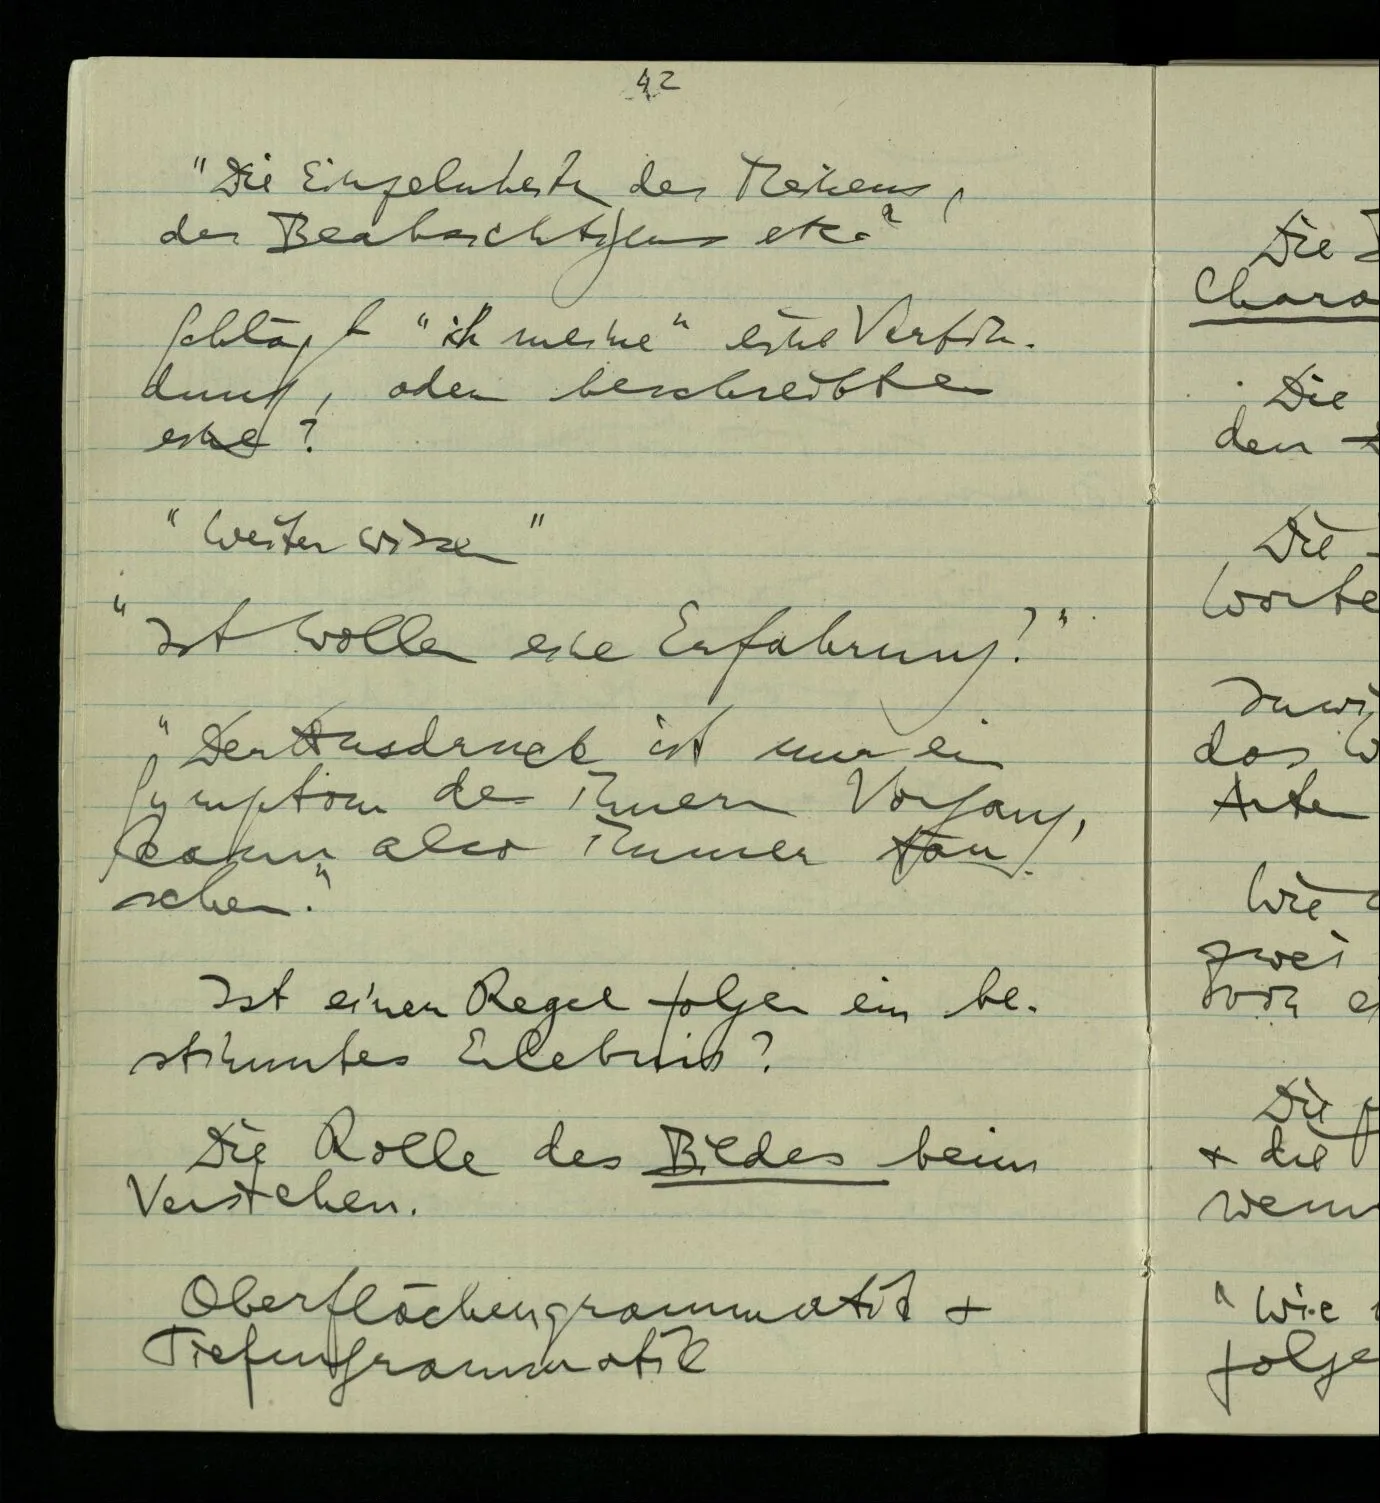 42
"Die Einzelnheiten des Meinens,
des Beabsichtigens etc."
Schlägt "ich meine" eine Verbin-
dung, oder beschreibt es
eine?
"Weiter wissen"
"Ist Wollen eine Erfahrung?"
"Der Ausdruck ist nur ein
Symptom des innern Vorgangs,
kann also immer täu-
schen."
Ist einer Regel folgen ein be-
stimmtes Erlebnis?
Die Rolle des Bildes beim
Verstehen.
Oberflächengrammatik +
Tiefengrammatik
Die
Die
den
Die
Worte
das
Arten
Wie
zwei
von
Die
+ die
wenn
"Wie
folge